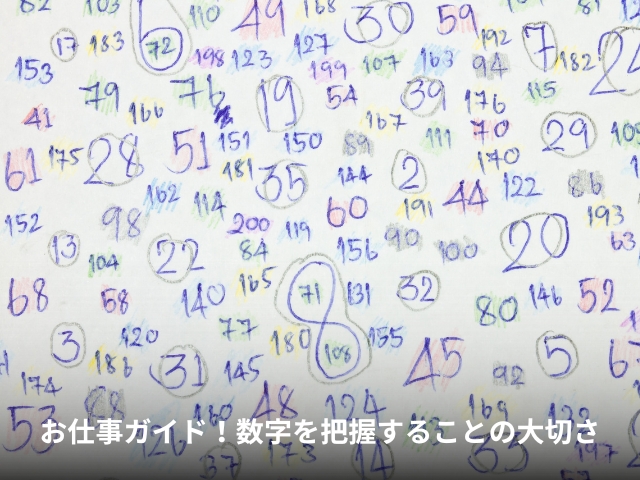 103 110 49 168 30 59
17 183 72 198 123 127 192 7 182
153 199 107 163 94
79 166 76 19 54 39 176 115
41 167
61 175 28 51 151 150 89 111 70 29
181 35 144 2 170
162 114 44 122 86
152 98 200 119 60 191 193
13 22 84 156 90 100 20 63
104
68 58 140 165 71 131 32 80 146 52
3 120 77 180 8 108 155 45 5
186 31 145 92
174
53 88 160 48 124 169
お仕事ガイド！数字を把握することの大切さ
126 37 173 14 33 197